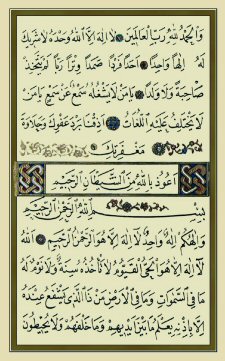 وَالْحَمْدُ لِلَّهِ رَبِّ الْعَالَمِينَ لَا إِلَهَ إِلَّا اللَّهُ وَحْدَهُ لَا شَرِيكَ
لَهُ إِلَهًا وَاحِدًا أَحَدًا فَرْدًا صَمَدًا وِتْرًا رَبًّا لَمْ يَتَّخِذْ
صَاحِبَةً وَلَا وَلَدًا يَا مَنْ لَا يَشْغَلُهُ سَمْعٌ عَنْ سَمْعٍ يَا مَنْ
لَا يَخْتَلِفُ عَلَيْهِ اللُّغَاتُ أَذِقْنَا بَرْدَ عَفْوِكَ وَحَلَاوَةَ
مَغْفِرَتِكَ
أَعُوذُ بِاللَّهِ مِنَ الشَّيْطَانِ الرَّجِيمِ
بِسْمِ اللَّهِ الرَّحْمَنِ الرَّحِيمِ
وَإِلَهُكُمْ إِلَهٌ وَاحِدٌ لَا إِلَهَ إِلَّا هُوَ الرَّحْمَنُ الرَّحِيمُ اللَّهُ
لَا إِلَهَ إِلَّا هُوَ الْحَيُّ الْقَيُّومُ لَا تَأْخُذُهُ سِنَةٌ وَلَا نَوْمٌ لَهُ
مَا فِي السَّمَوَاتِ وَمَا فِي الْأَرْضِ مَنْ ذَا الَّذِي يَشْفَعُ عِنْدَهُ
إِلَّا بِإِذْنِهِ يَعْلَمُ مَا بَيْنَ أَيْدِيهِمْ وَمَا خَلْفَهُمْ وَلَا يُحِيطُونَ